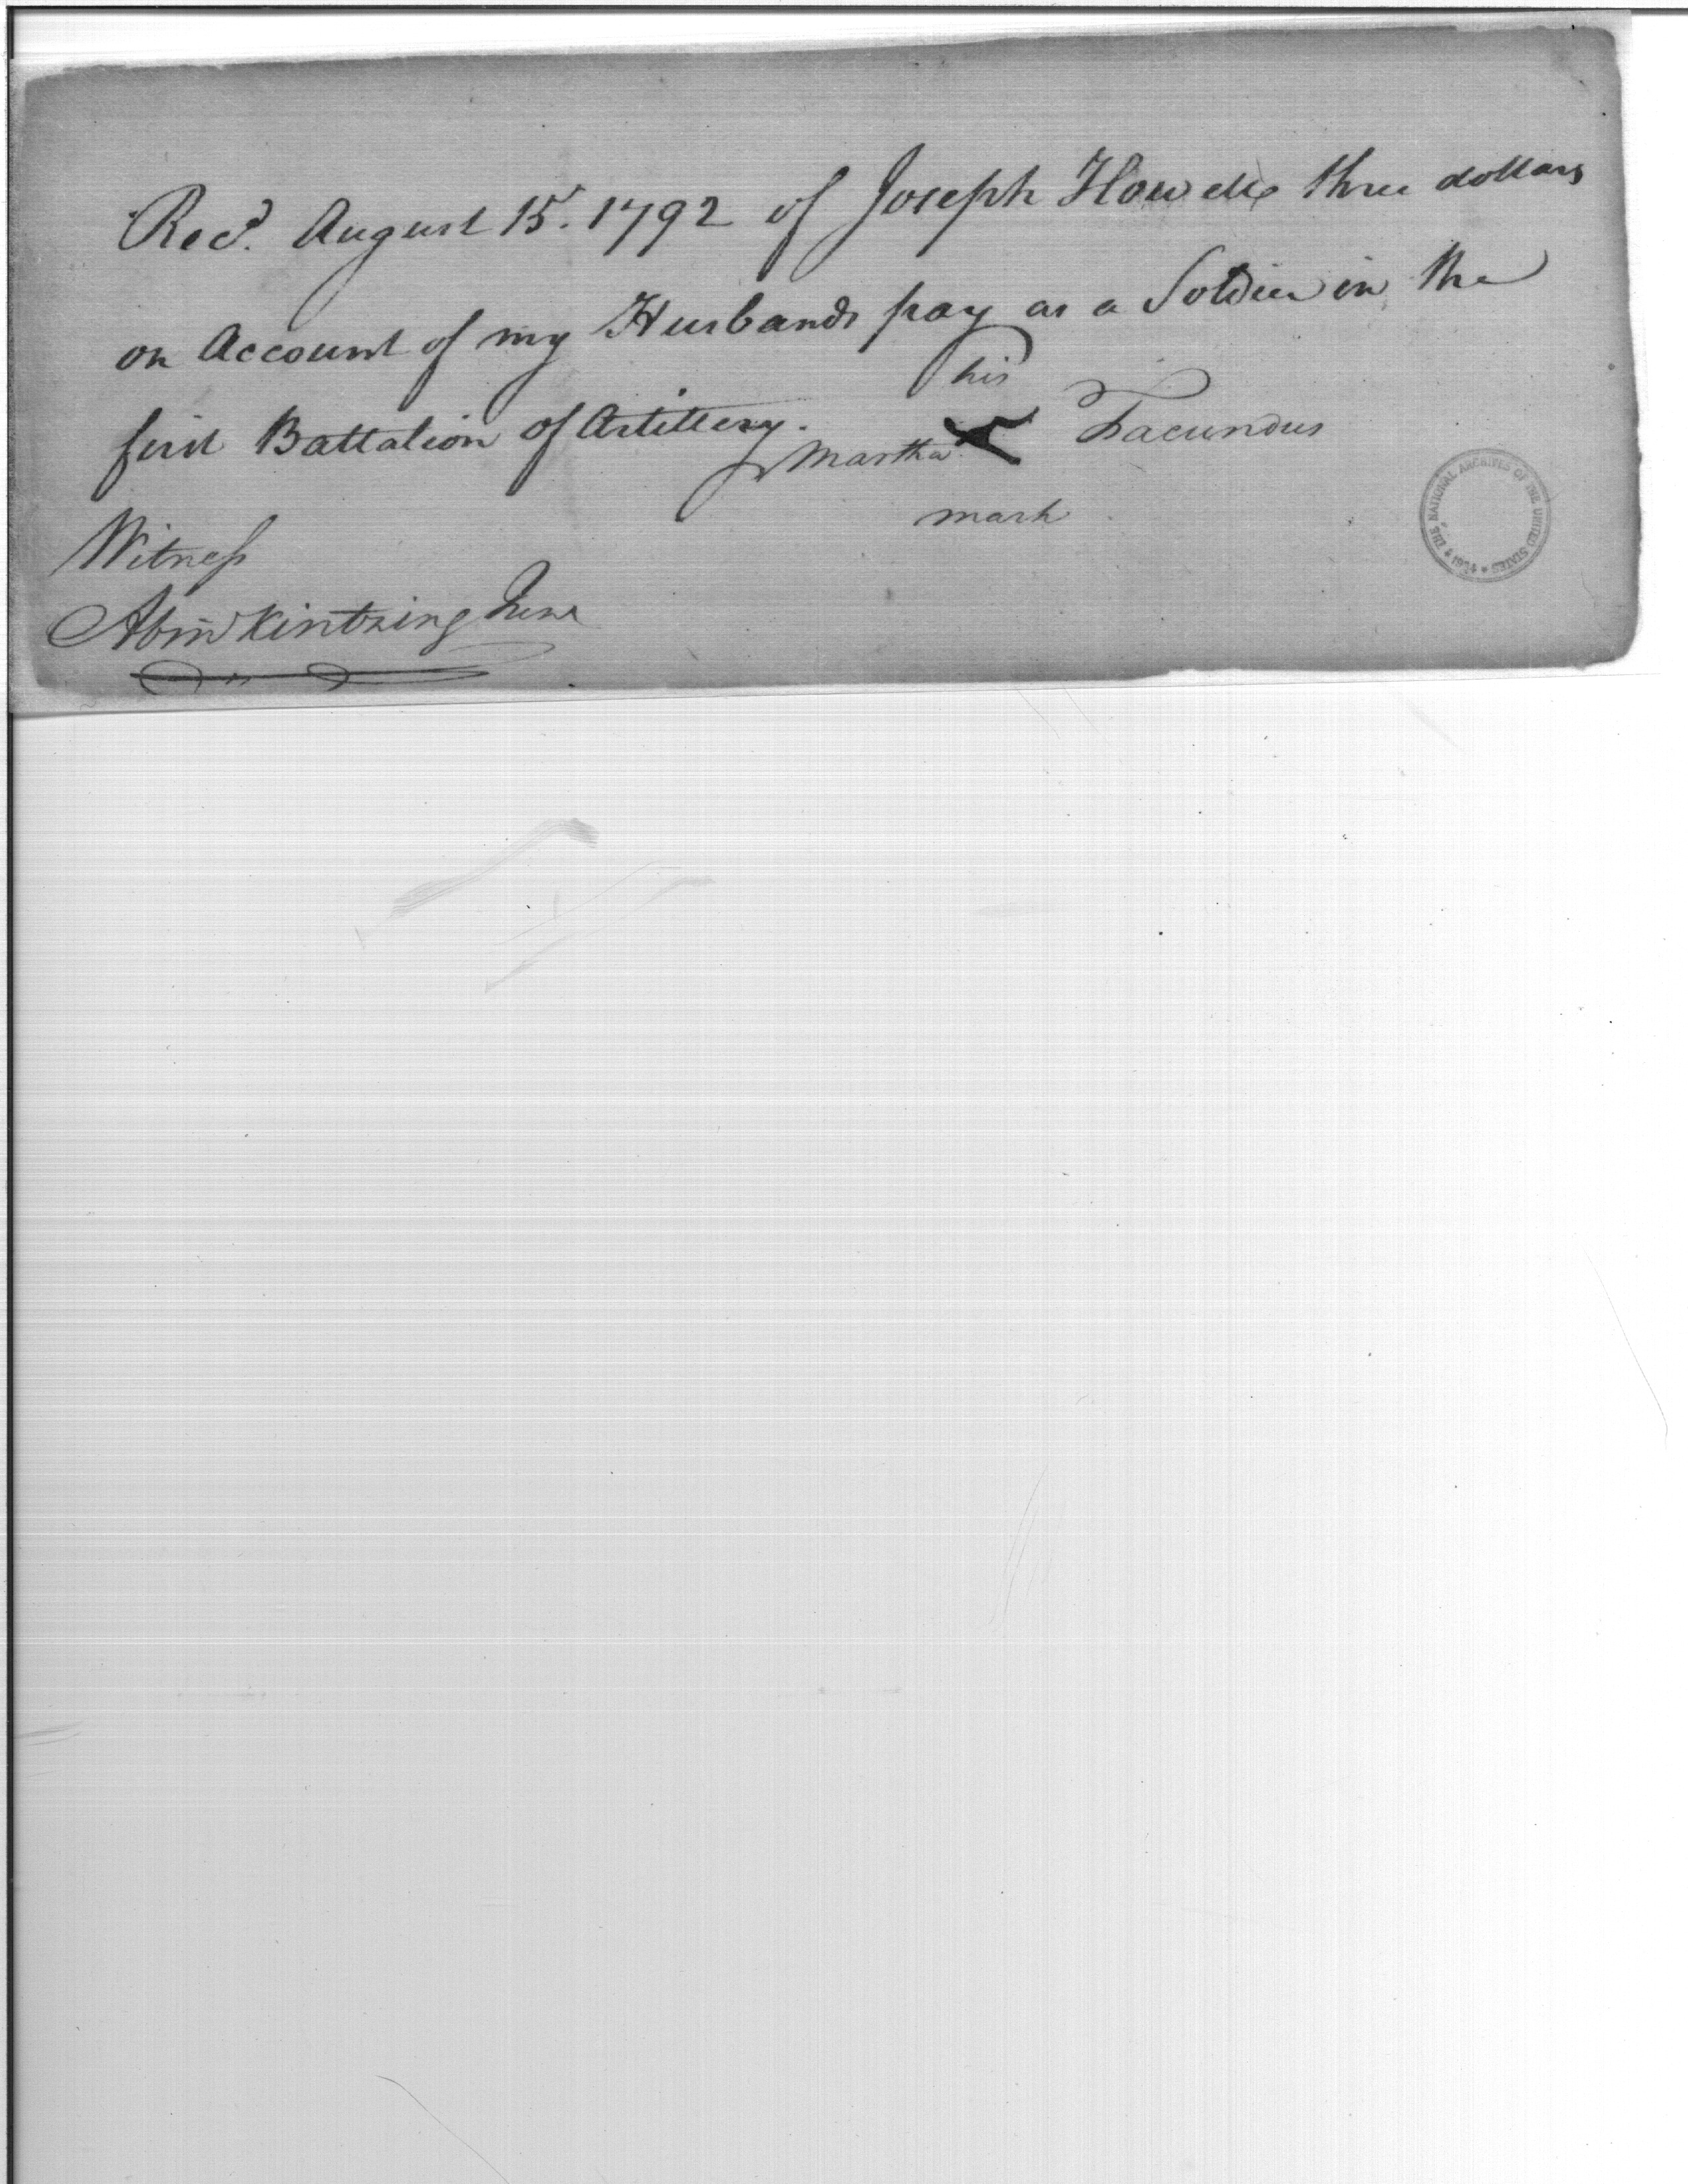 Recd. August 15. 1792 of Joseph Howell three dollars
on Account of my Husbands pay as a Soldier in the
first Battalion of Artillery.
his
Martha Facundus
mark
Witness
Abm Kintzing Junr
THE NATIONAL ARCHIVES OF THE UNITED STATES ★ 1934 ★